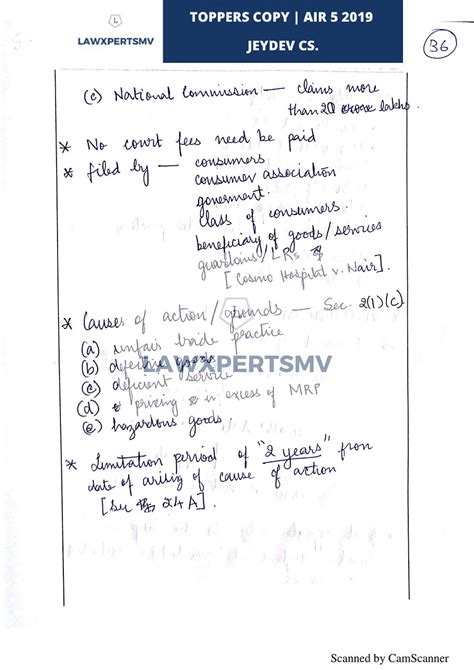 TOPPERS COPY | AIR 5 2019
LAWXPERTSMV
JEYDEV CS.
36
(c) National Commission — claims more
than 20 lakhs.
* No court fees need be paid
* filed by — consumers
consumer association
government.
class of consumers.
beneficiary of goods/services
guardains/LRs
[Cosmo Hospital v. Nair].
* Causes of action/grounds — Sec. 2(1)(c)
(a) unfair trade practice
(b) defective goods
LAWXPERTSMV
(c) deficient service
(d) pricing in excess of MRP
(e) hazardous goods.
* Limitation period of "2 years" from
date of arising of cause of action
[Sec 24A].
Scanned by CamScanner